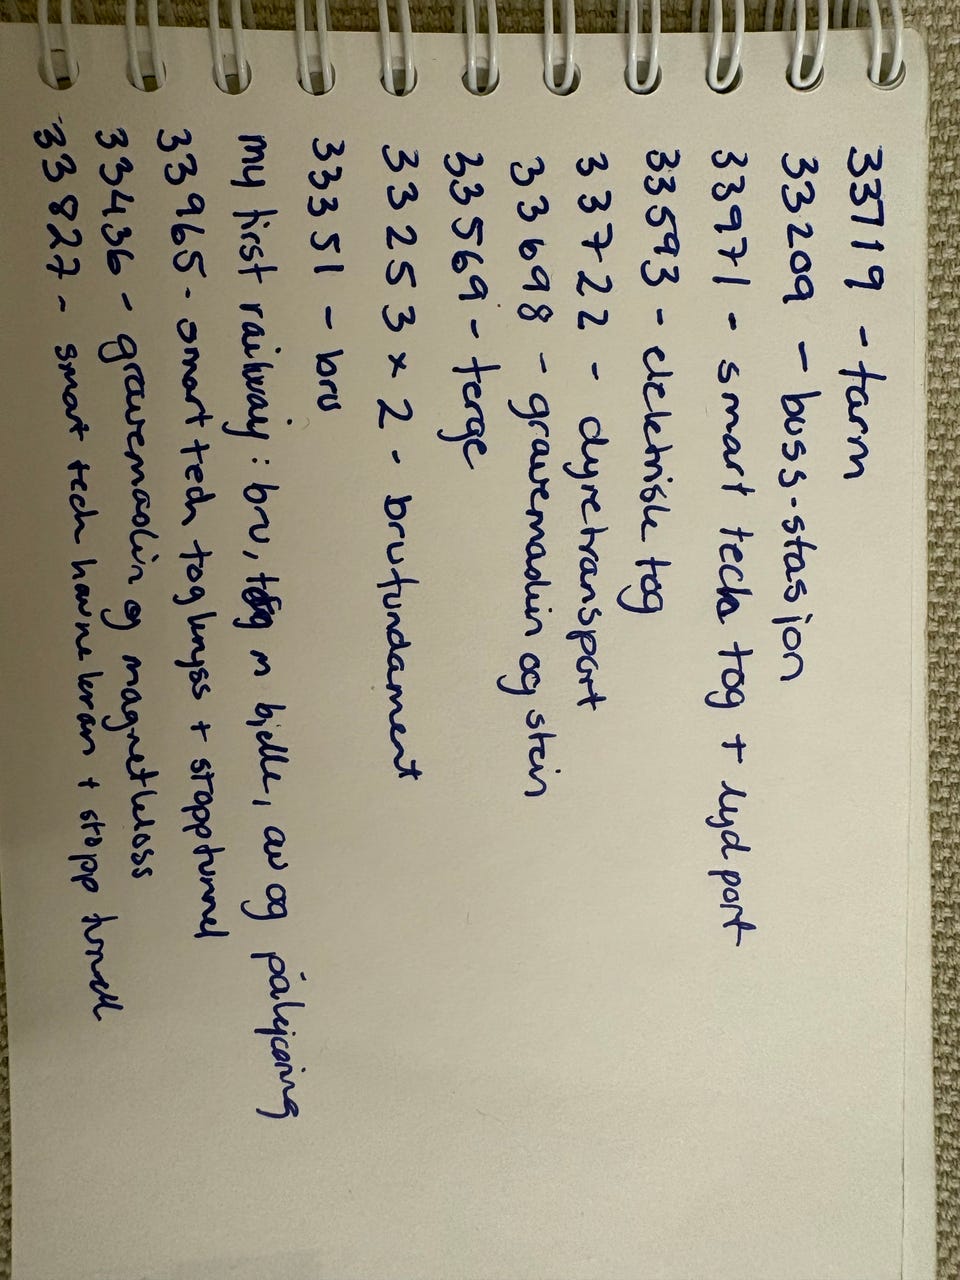 33719 - farm
33209 - buss-stasjon
33971 - smart tech tog + lydport
33593 - elektrisk tog
33722 - dyretransport
33698 - gravemaskin og stein
33569 - ferge
33253 x 2 - brufundament
33351 - bru
my first railway: bru, tog m bjelle, av og påkjøring
33965 - smart tech togkryss + stopptunnel
33436 - gravemaskin og magnetkloss
33827 - smart tech havnekran + stopp tunell